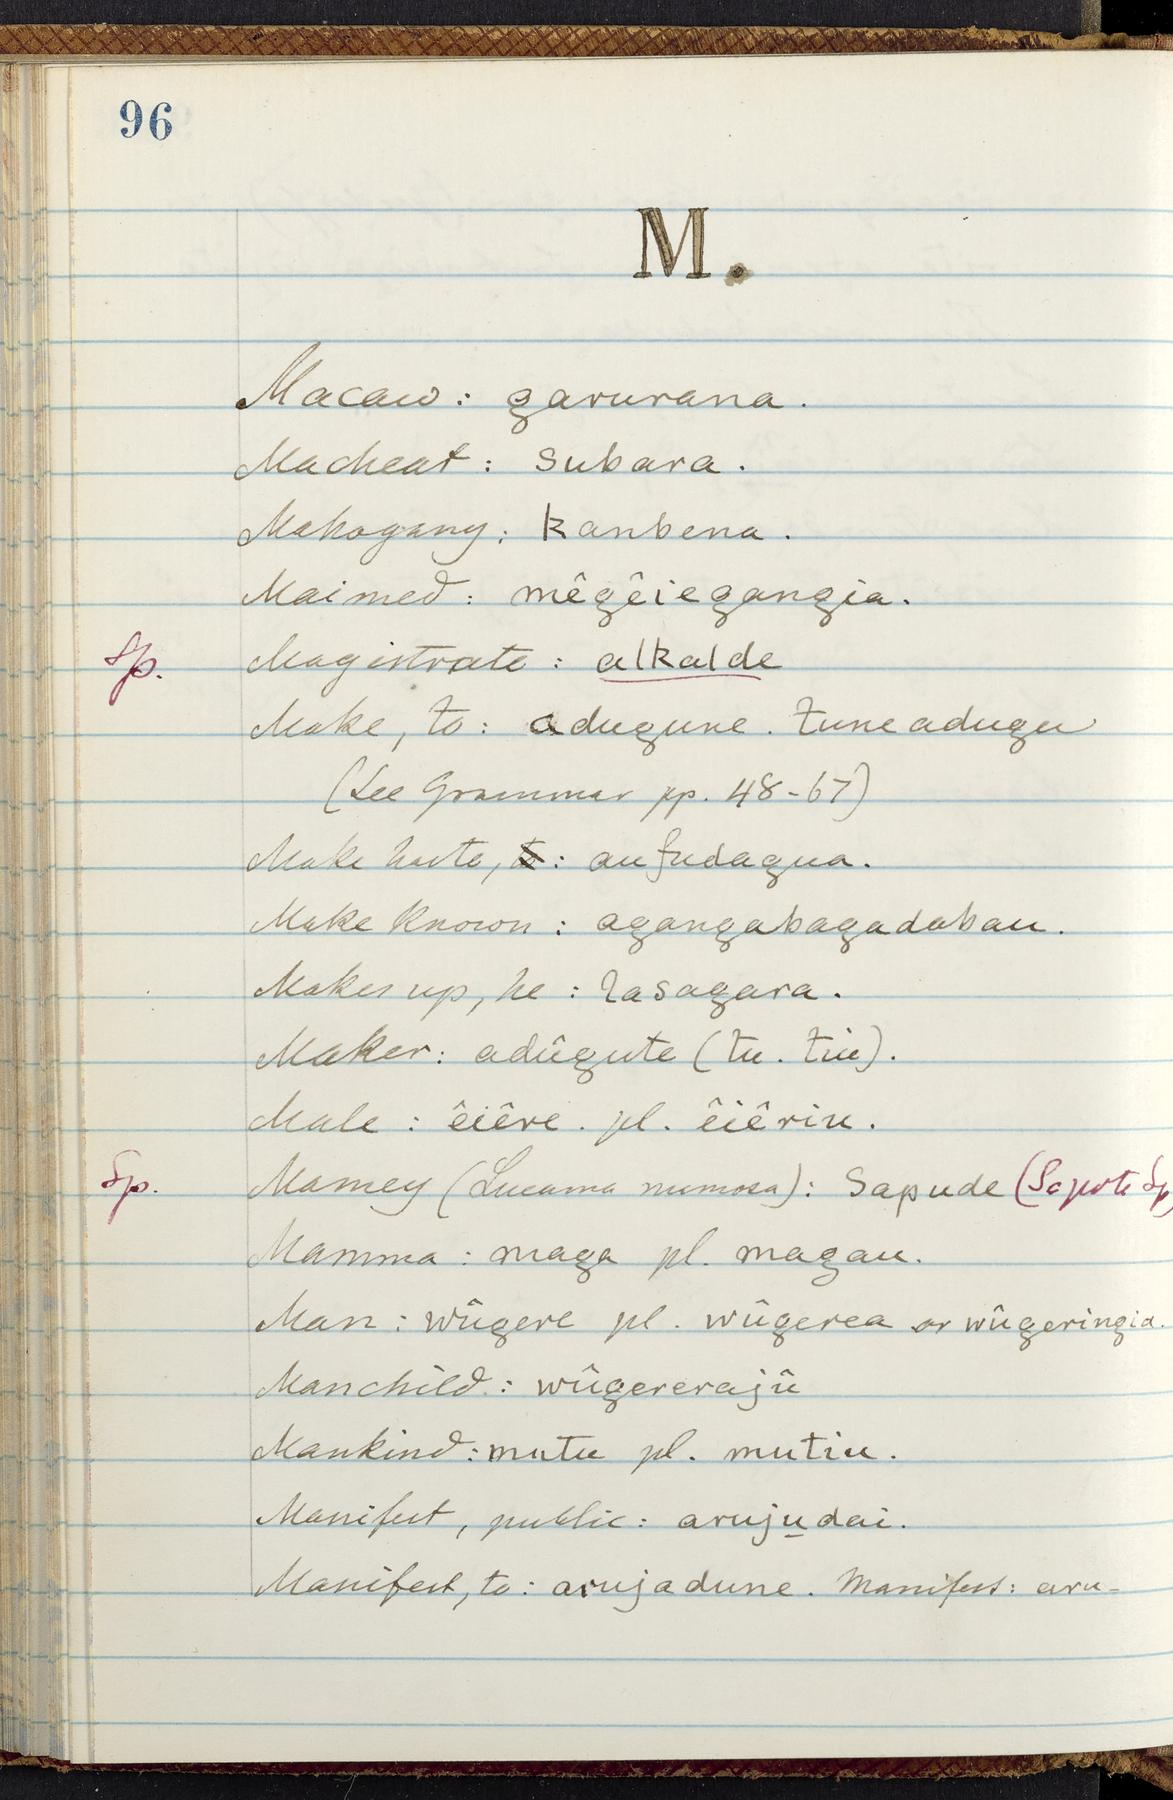 96
M.
Macaw: garurana.
Macheat: subara.
Mahogany: kanbena.
Maimed: mêgêiegangia.
Sp. Magistrate: alkalde
Make, to: adugune. tuneadugu
(See Grammar pp. 48-67)
Make haste, to: aufudagua.
Make known: agangabagadaban.
Makes up, he: lasagara.
Maker: adûgute (tu. tiu).
Male: êiêre. pl. êiêriu.
Sp. Mamey (Lucama mumosa): Sapude (Sapote Sp)
Mamma: maga pl. magau.
Man: wûgere pl. wûgerea or wûgeringia.
Manchild: wûgererajû
Mankind: mutu pl. mutiu.
Manifest, public: arujudai.
Manifest, to: arujadune. Manifest: aru-